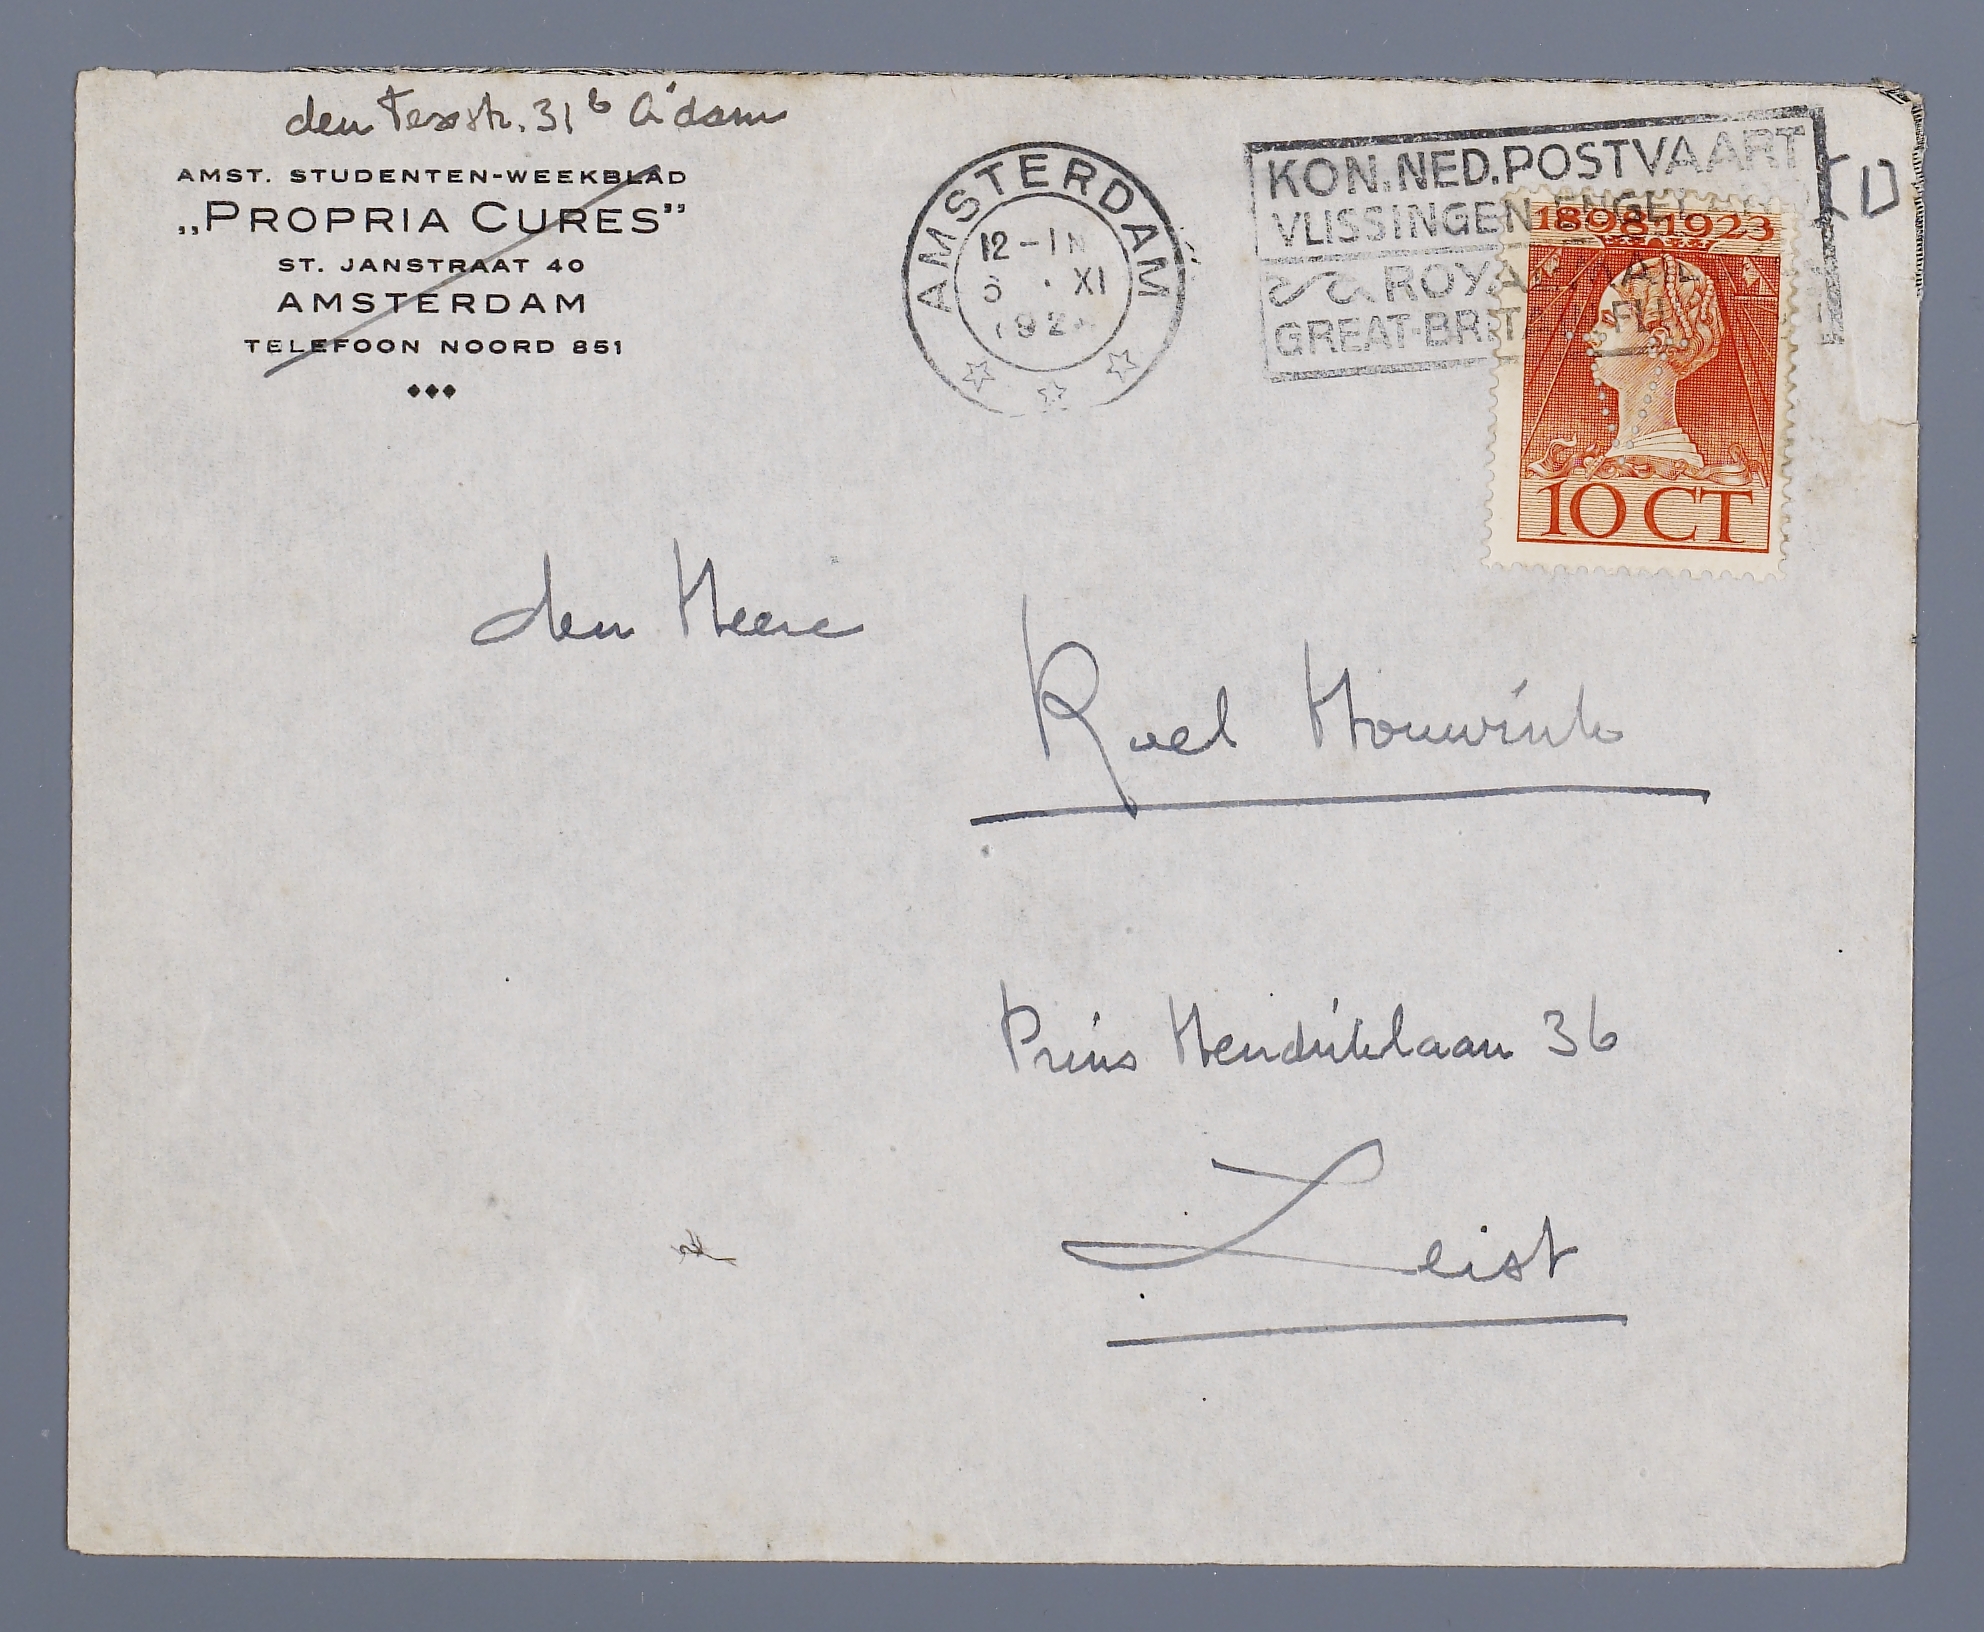 den Texstr. 31 b A'dam
AMST. STUDENTEN-WEEKBLAD
„PROPRIA CURES”
ST. JANSTRAAT 40
AMSTERDAM
TELEFOON NOORD 851
AMSTERDAM
12-1N
XI
192
KON. NED. POSTVAART
VLISSINGEN-ENGEL
ROYAL MAIL
GREAT-BRIT
1898-1923
10 CT
den Heere
Roel Houwink
Prins Hendriklaan 36
Zeist